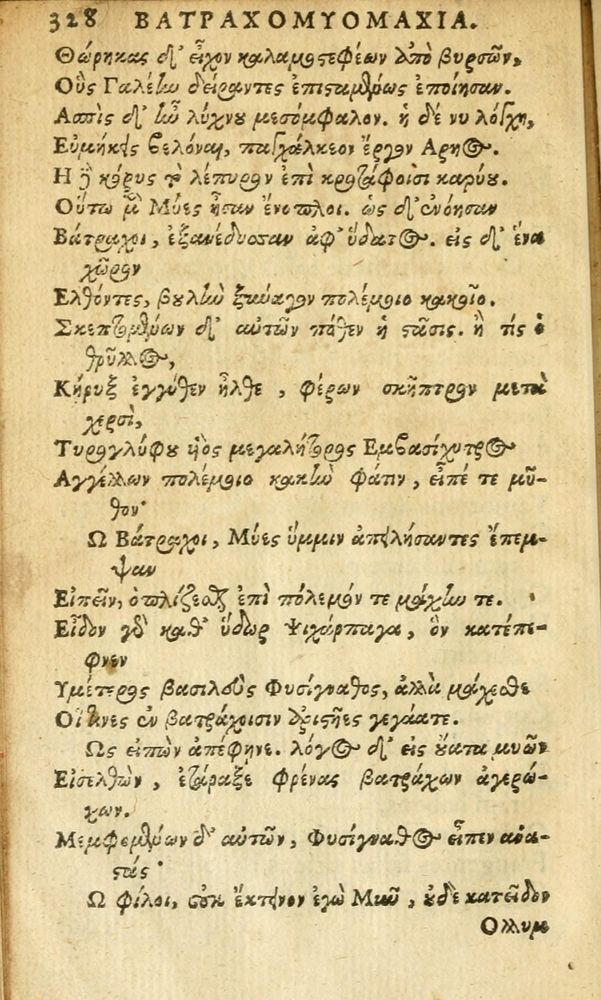 328 ΒΑΤΡΑΧΟΜΥΟΜΑΧΙΑ.
Θώρηκας δ' εἶχον καλαμοστεφέων ἀπὸ βυρσῶν,
Οὓς Γαλέην δείραντες ἐπισταμένως ἐποίησαν.
Ασπὶς δ' ἦν λύχνου μεσόμφαλον. ἡ δέ νυ λόγχη,
Εὐμήκης βελόνη, παγχάλκεον ἔργον Αρηος.
Η δὲ κόρυς τὸ λέπυρον ἐπὶ κροτάφοισι καρύου.
Οὕτω μὲν Μύες ἦσαν ἔνοπλοι. ὡς δ' ἐνόησαν
Βάτραχοι, ἐξανέδυσαν ἀφ' ὕδατος. εἰς δ' ἕνα
χῶρον
Ελθόντες, βουλὴν ξύναγον πολέμοιο κακοῖο.
Σκεπτομένων δ' αὐτῶν πόθεν ἡ στάσις. ἢ τίς ὁ
θρῦλλος,
Κήρυξ ἐγγύθεν ἦλθε, φέρων σκῆπτρον μετὰ
χερσὶ,
Τυρογλύφου υἱὸς μεγαλήτορος Εμβασίχυτρος
Αγγέλλων πολέμοιο κακὴν φάτιν, εἶπέ τε μῦ-
θον·
Ω Βάτραχοι, Μύες ὔμμιν ἀπειλήσαντες ἔπεμ-
ψαν
Εἰπεῖν, ὁπλίζεσθαι ἐπὶ πόλεμόν τε μάχην τε.
Εἶδον γὰρ καθ' ὕδωρ Ψιχάρπαγα, ὃν κατέπε-
φνεν
Υμέτερος βασιλεὺς Φυσίγναθος, ἀλλὰ μάχεσθε
Οἵτινες ἐν βατράχοισιν ἀριστῆες γεγάατε.
Ως εἰπὼν ἀπέφηνε. λόγος δ' εἰς οὔατα μυῶν
Εἰσελθὼν, ἐτάραξε φρένας βατράχων ἀγερώ-
χων.
Μεμφομένων δ' αὐτῶν, Φυσίγναθος εἶπεν ἀνα-
στάς·
Ω φίλοι, οὐκ ἔκτεινον ἐγὼ Μῦν, οὐδὲ κατεῖδον
Ολλυμε